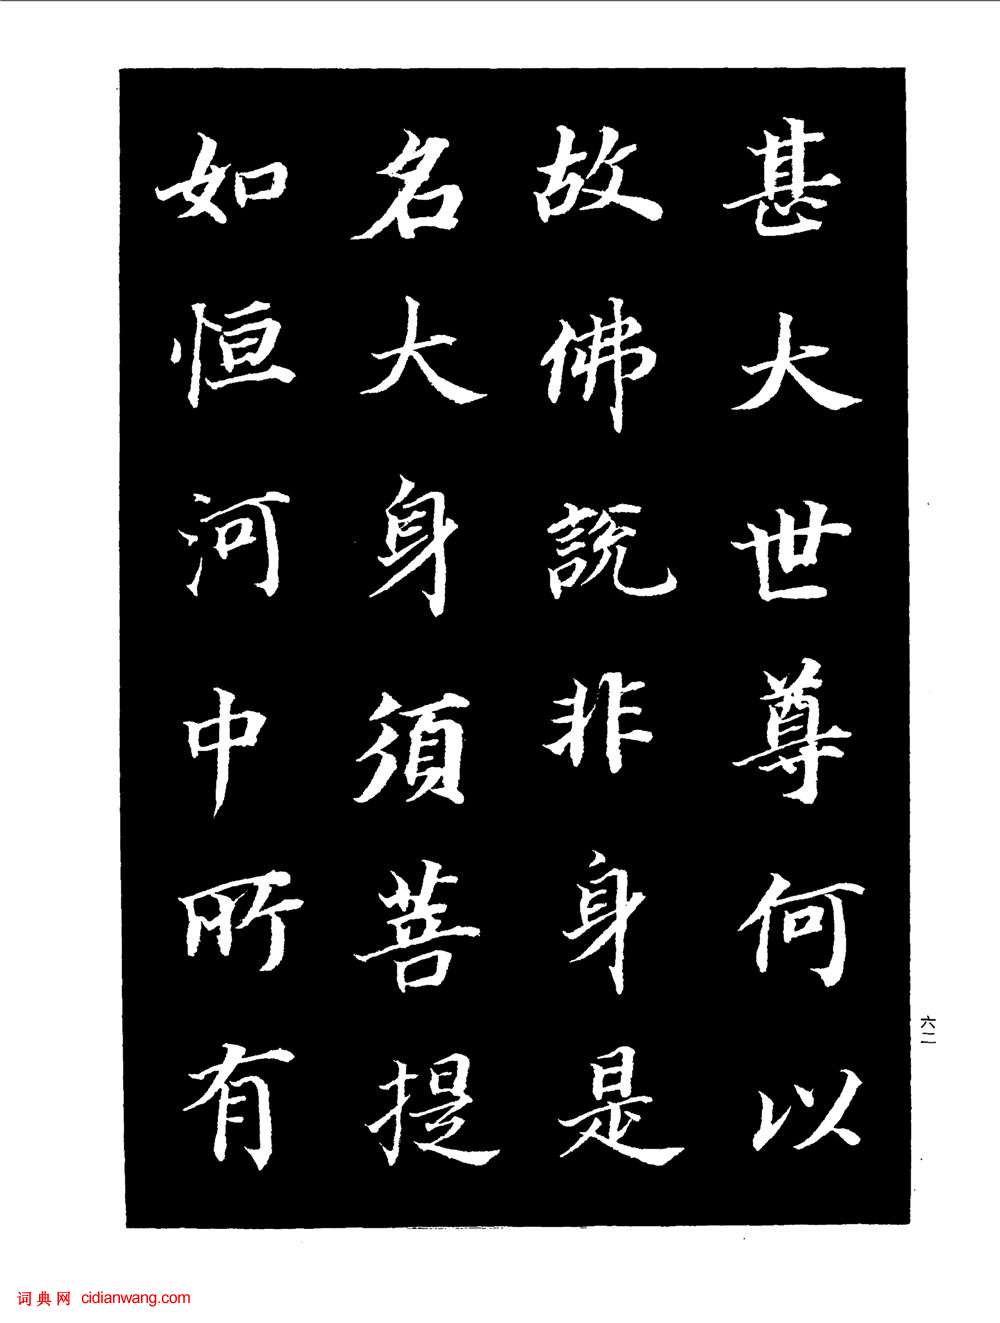 甚大世尊何以
故佛說非身是
名大身須菩提
如恒河中所有
六二
词典网 cidianwang.com